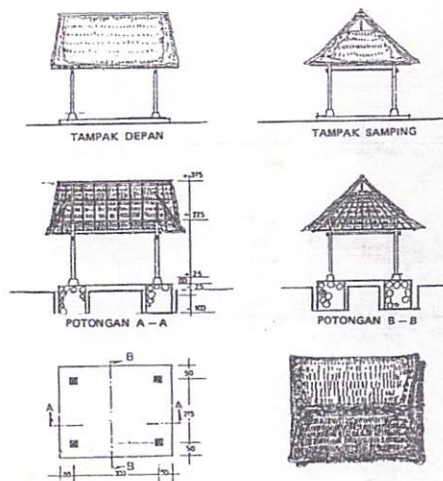 TAMPAK DEPAN
TAMPAK SAMPING
225
25
25
100
POTONGAN A – A
POTONGAN B – B
B
50
A
A
50
B
50
50